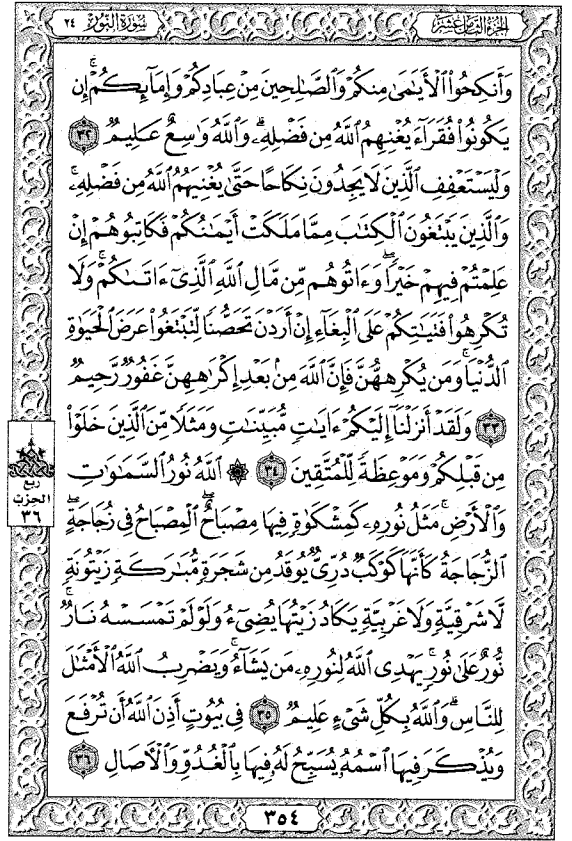 سُورَةُ النُّورِ ٢٤
الجُزْءُ الثَّامِنَ عَشَرَ
وَأَنكِحُوا۟ ٱلْأَيَـٰمَىٰ مِنكُمْ وَٱلصَّـٰلِحِينَ مِنْ عِبَادِكُمْ وَإِمَآئِكُمْ ۚ إِن
يَكُونُوا۟ فُقَرَآءَ يُغْنِهِمُ ٱللَّهُ مِن فَضْلِهِۦ ۗ وَٱللَّهُ وَٰسِعٌ عَلِيمٌ ٣٢
وَلْيَسْتَعْفِفِ ٱلَّذِينَ لَا يَجِدُونَ نِكَاحًا حَتَّىٰ يُغْنِيَهُمُ ٱللَّهُ مِن فَضْلِهِۦ ۗ
وَٱلَّذِينَ يَبْتَغُونَ ٱلْكِتَـٰبَ مِمَّا مَلَكَتْ أَيْمَـٰنُكُمْ فَكَاتِبُوهُمْ إِنْ
عَلِمْتُمْ فِيهِمْ خَيْرًا ۖ وَءَاتُوهُم مِّن مَّالِ ٱللَّهِ ٱلَّذِىٓ ءَاتَىٰكُمْ ۚ وَلَا
تُكْرِهُوا۟ فَتَيَـٰتِكُمْ عَلَى ٱلْبِغَآءِ إِنْ أَرَدْنَ تَحَصُّنًا لِّتَبْتَغُوا۟ عَرَضَ ٱلْحَيَوٰةِ
ٱلدُّنْيَا ۚ وَمَن يُكْرِههُّنَّ فَإِنَّ ٱللَّهَ مِنۢ بَعْدِ إِكْرَٰهِهِنَّ غَفُورٌ رَّحِيمٌ
٣٣ وَلَقَدْ أَنزَلْنَآ إِلَيْكُمْ ءَايَـٰتٍ مُّبَيِّنَـٰتٍ وَمَثَلًا مِّنَ ٱلَّذِينَ خَلَوْا۟
مِن قَبْلِكُمْ وَمَوْعِظَةً لِّلْمُتَّقِينَ ٣٤ ۞ ٱللَّهُ نُورُ ٱلسَّمَـٰوَٰتِ
وَٱلْأَرْضِ ۚ مَثَلُ نُورِهِۦ كَمِشْكَوٰةٍ فِيهَا مِصْبَاحٌ ۖ ٱلْمِصْبَاحُ فِى زُجَاجَةٍ ۖ
ٱلزُّجَاجَةُ كَأَنَّهَا كَوْكَبٌ دُرِّىٌّ يُوقَدُ مِن شَجَرَةٍ مُّبَـٰرَكَةٍ زَيْتُونَةٍ
لَّا شَرْقِيَّةٍ وَلَا غَرْبِيَّةٍ يَكَادُ زَيْتُهَا يُضِىٓءُ وَلَوْ لَمْ تَمْسَسْهُ نَارٌ ۚ
نُّورٌ عَلَىٰ نُورٍ ۗ يَهْدِى ٱللَّهُ لِنُورِهِۦ مَن يَشَآءُ ۚ وَيَضْرِبُ ٱللَّهُ ٱلْأَمْثَـٰلَ
لِلنَّاسِ ۗ وَٱللَّهُ بِكُلِّ شَىْءٍ عَلِيمٌ ٣٥ فِى بُيُوتٍ أَذِنَ ٱللَّهُ أَن تُرْفَعَ
وَيُذْكَرَ فِيهَا ٱسْمُهُۥ يُسَبِّحُ لَهُۥ فِيهَا بِٱلْغُدُوِّ وَٱلْـَٔاصَالِ ٣٦
ربع
الحزب
٣٦
٣٥٤